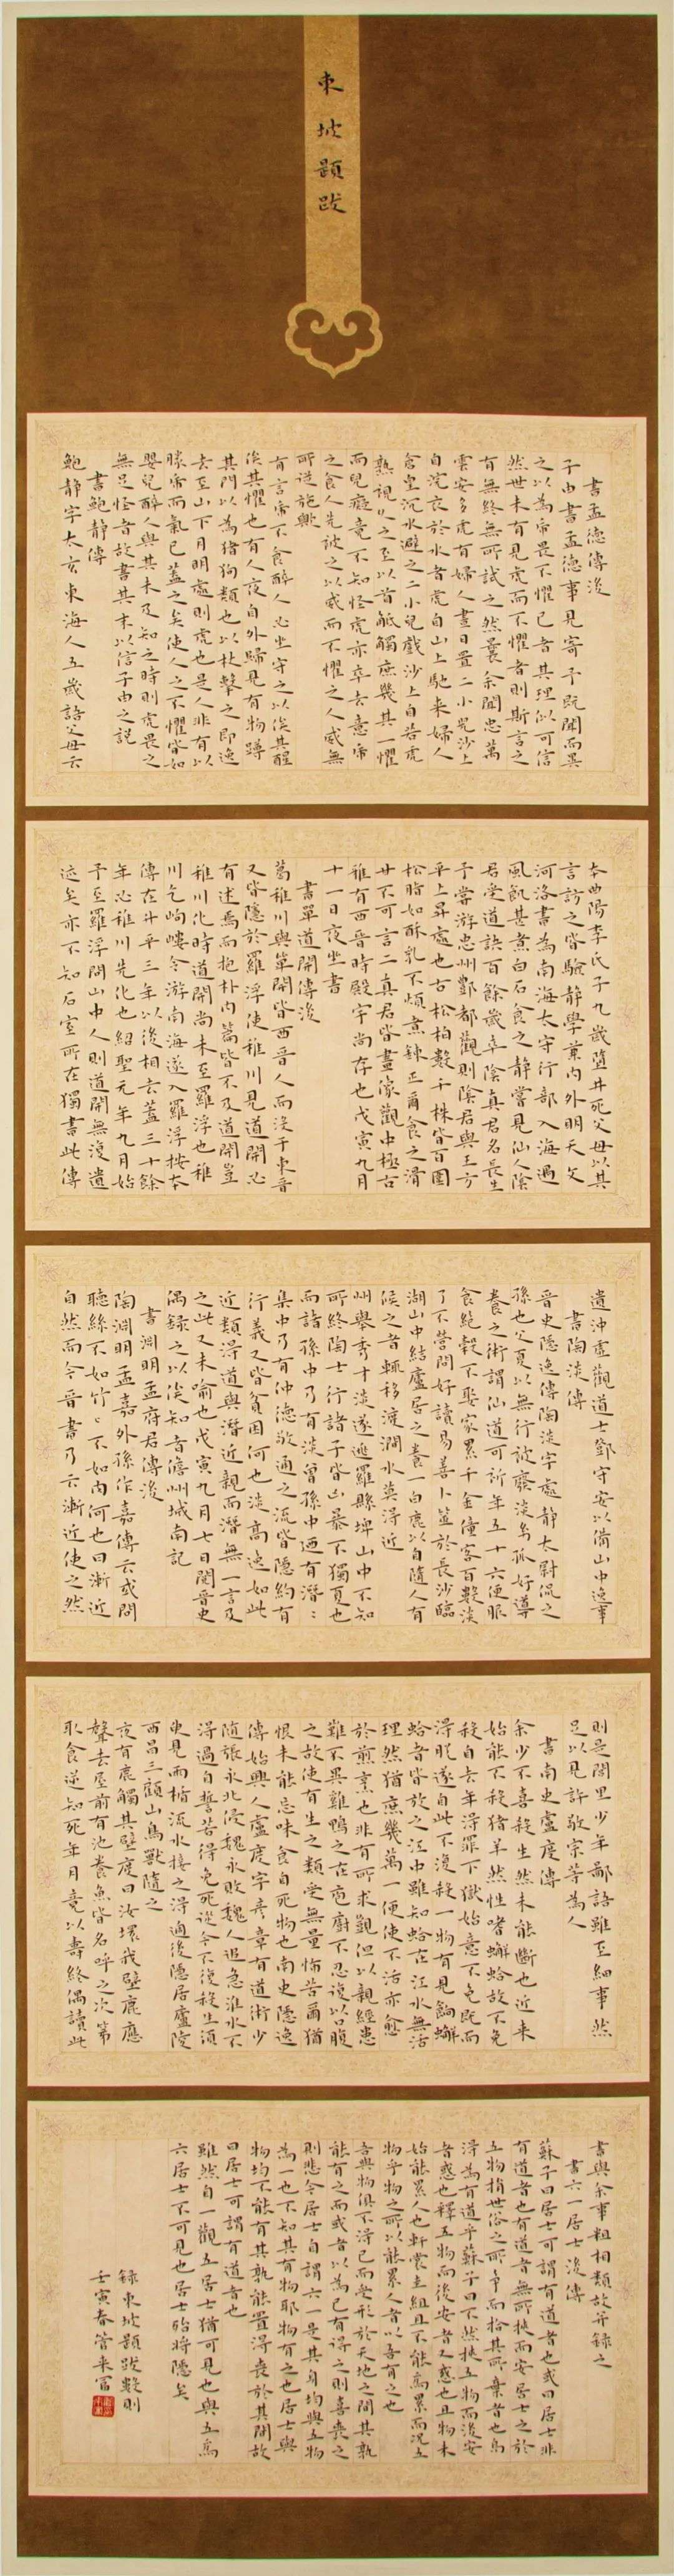 東坡題跋
書孟德傳後
子由書孟德事見寄予既聞而異
之以為帝畏不懼己者其理似可信
然世未有見虎而不懼者則斯言之
有無終無所試之然曩余聞忠萬
雲安多虎有婦人晝日置二小兒沙上
自浣衣於水者虎自山上馳來婦人
倉皇沉水避之二小兒戲沙上自若虎
熟視久之至以首觝觸庶幾其一懼
而兒癡竟不知怪虎亦卒去意帝
之食人先被之以威而不懼之人威無
所從施歟
有言帝不食醉人必坐守之以俟其醒
俟其懼也有人夜自外歸見有物蹲
其門以為猪狗類也以杖擊之即逸
去至山下月明處則虎也是人非有以
勝帝而氣已蓋之矣使人之不懼皆如
嬰兒醉人與其未及知之時則虎畏之
無足怪者故書其末以信子由之說
書鮑靜傳
鮑靜字太玄東海人五歲語父母云
本曲陽李氏子九歲墮井死父母以其
言訪之皆驗靜學兼內外明天文
河洛書為南海太守行部入海遇
風飢甚煮白石食之靜嘗見仙人陰
君受道訣百餘歲卒陰真君名長生
予嘗游忠州酆都觀則陰君與王方
平上昇處也古松柏數千株皆百圍
松脂如酥乳不煩煮鍊正爾食之滑
甘不可言二真君皆畫像觀中極古
雅有西晉時殿宇尚存也戊寅九月
十一日夜坐書
書單道開傳後
葛稚川與單開皆西晉人而沒于東晉
又皆隱於羅浮使稚川見道開必
有述焉而抱朴內篇皆不及道開豈
稚川化時道開尚未至羅浮也稚
川乞岣嶁令游南海遂入羅浮按本
傳在升平三年以後相去蓋三十餘
年必稚川先化也紹聖元年九月始
予至羅浮問山中人則道開無復遺
迹矣亦不知石室所在獨書此傳
遺沖虛觀道士鄧守安以備山中逸事
書陶淡傳
晉史隱逸傳陶淡字處靜太尉侃之
孫也父夏以無行被廢淡幼孤好導
養之術謂仙道可祈年五十六便服
食絕穀不娶家累千金僮客百數淡
了不營問好讀易善卜筮於長沙臨
湖山中結廬居之養一白鹿以自隨人有
候之者輒移渡澗水莫得近
州舉秀才淡遂逃羅縣埤山中不知
所終陶士行諸子皆凶暴不獨夏也
而諸孫中乃有淡曾孫中迺有潛〻
集中乃有仲德敬通之流皆隱約有
行義又皆貧困何也淡高逸如此
近類得道與潛近親而潛無一言及
之此又未喻也戊寅九月七日閱晉史
偶錄之以俟知音儋州城南記
書淵明孟府君傳後
陶淵明孟嘉外孫作嘉傳云或問
聽絲不如竹〻不如肉何也曰漸近
自然而今晉書乃云漸近使之然
則是閭里少年鄙語雖至細事然
足以見許敬宗等為人
書南史盧度傳
余少不喜殺生然未能斷也近來
始能不殺猪羊然性嗜蠏蛤故不免
殺自去年得罪下獄始意不免既而
得脫遂自此不復殺一物有見餉蠏
蛤者皆放之江中雖知蛤在江水無活
理然猶庶幾萬一便使不活亦愈
於煎烹也非有所求觀但以親經患
難不異雞鴨之在庖廚不忍復以口腹
之故使有生之類受無量怖苦爾猶
恨未能忘味食自死物也南史隱逸
傳始興人盧度字彥章有道術少
隨張永北侵魏永敗魏人追急淮水不
得過自誓若得免死從今不復殺生須
臾見兩楯流水接之得過後隱居廬陵
西昌三顧山鳥獸隨之
夜有鹿觸其壁度曰汝壞我壁鹿應
聲去屋前有池養魚皆名呼之次第
取食逆知死年月竟以壽終偶讀此
書與余事粗相類故并錄之
書六一居士後傳
蘇子曰居士可謂有道者也或曰居士非
有道者也有道者無所挾而安居士之於
五物捐世俗之所爭而拾其所棄者也烏
得為有道乎蘇子曰不然挾五物而後安
者惑也釋五物而後安者又惑也且物未
始能累人也軒裳圭組且不能為累而況五
物乎物之所以能累人者以吾有之也
吾與物俱不得已而受形於天地之間其孰
能有之而或者以為己有得之則喜喪之
則悲今居士自謂六一是其身均與五物
為一也不知其有物耶物有之也居士與
物均不能有其孰能置得喪於其間故
曰居士可謂有道者也
雖然自一觀五居士猶可見也與五為
六居士不可見也居士殆將隱矣
錄東坡題跋數則
壬寅春管來富